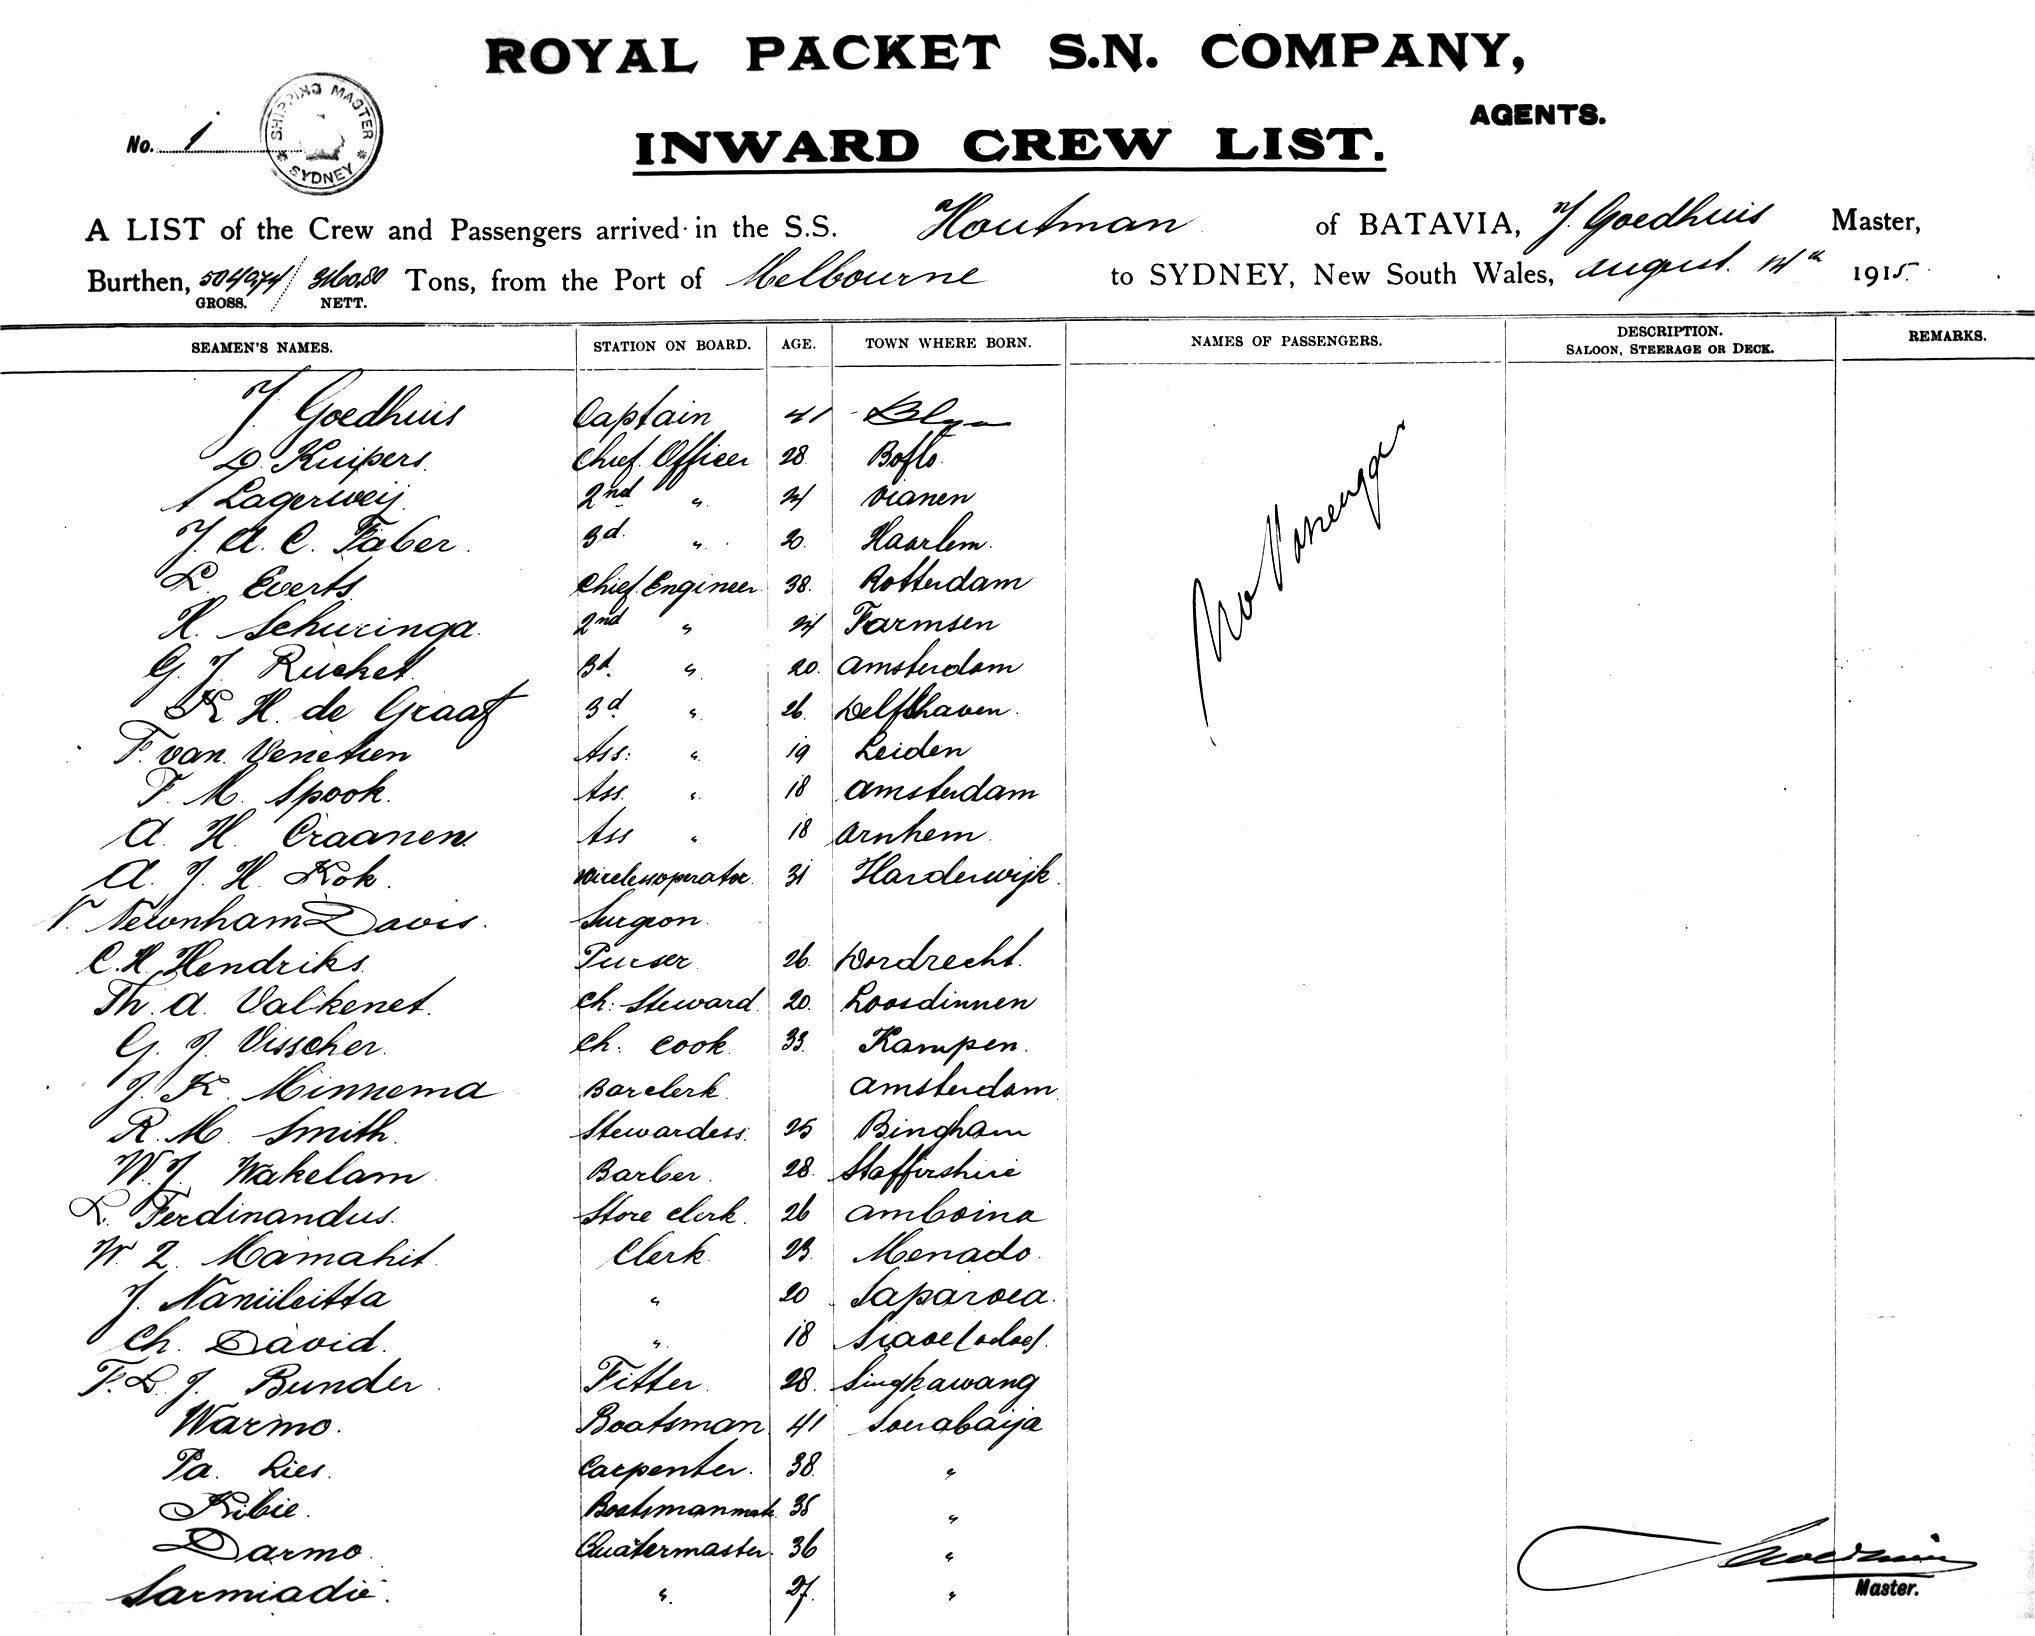 ROYAL PACKET S.N. COMPANY,
AGENTS.
No. 1
SHIPPING MASTER
* SYDNEY *
INWARD CREW LIST.
A LIST of the Crew and Passengers arrived in the S.S. Houtman of BATAVIA, J. Goedhuis Master,
Burthen, / 3160.80 Tons, from the Port of Melbourne to SYDNEY, New South Wales, august. 14th 1915.
GROSS. NETT.
SEAMEN'S NAMES. STATION ON BOARD. AGE. TOWN WHERE BORN. NAMES OF PASSENGERS. DESCRIPTION. REMARKS.
SALOON, STEERAGE OR DECK.
J. Goedhuis Captain 41
D. Kuipers. Chief Officer 28
A Lagerweij 2nd " Vianen
J. A. C. Faber. 3d. " 20. Haarlem.
L. Everts. Chief Engineer 38. Rotterdam
H. Schuringa. 2nd " Farmsen
G. J. Ruchet. 3d. " 20. Amsterdam
K H. de Graaf 3d " 26. Delfshaven.
F. van Venetien Ass: " 19 Leiden
F. M. Spook. Ass. " 18 Amsterdam
A. H. Craanen. Ass " 18 Arnhem.
A. J. H. Kok. Wirelessoperator. 31 Harderwijk.
V. Newnham Davis. Surgeon.
C. H. Hendriks. Purser 26. Dordrecht.
Th. A. Valkenet. Ch: Steward. 20. Loosdinnen
G. J. Visscher. Ch: Cook. 33. Kampen.
J. K. Minnema Barclerk Amsterdam.
R. M. Smith. Stewardess. 25 Bingham
W. J. Wakelam Barber. 28. Staffirshire
L. Ferdinandus. Store Clerk. 26 Amboina
W. Z. Mamahit. Clerk. 23. Menado.
J. Naniileitta " 20 Saparoea.
Ch. David. " 18
F. L. J. Bunder Fitter. 28. Singkawang
Warmo. Boatsman 41 Soerabaija
Pa. Lies. Carpenter. 38. "
Kibie. Boatsmanmate 35 "
Darmo. Quatermaster. 36 "
Sarmiadie. " 27. "
No Passenger
Master.